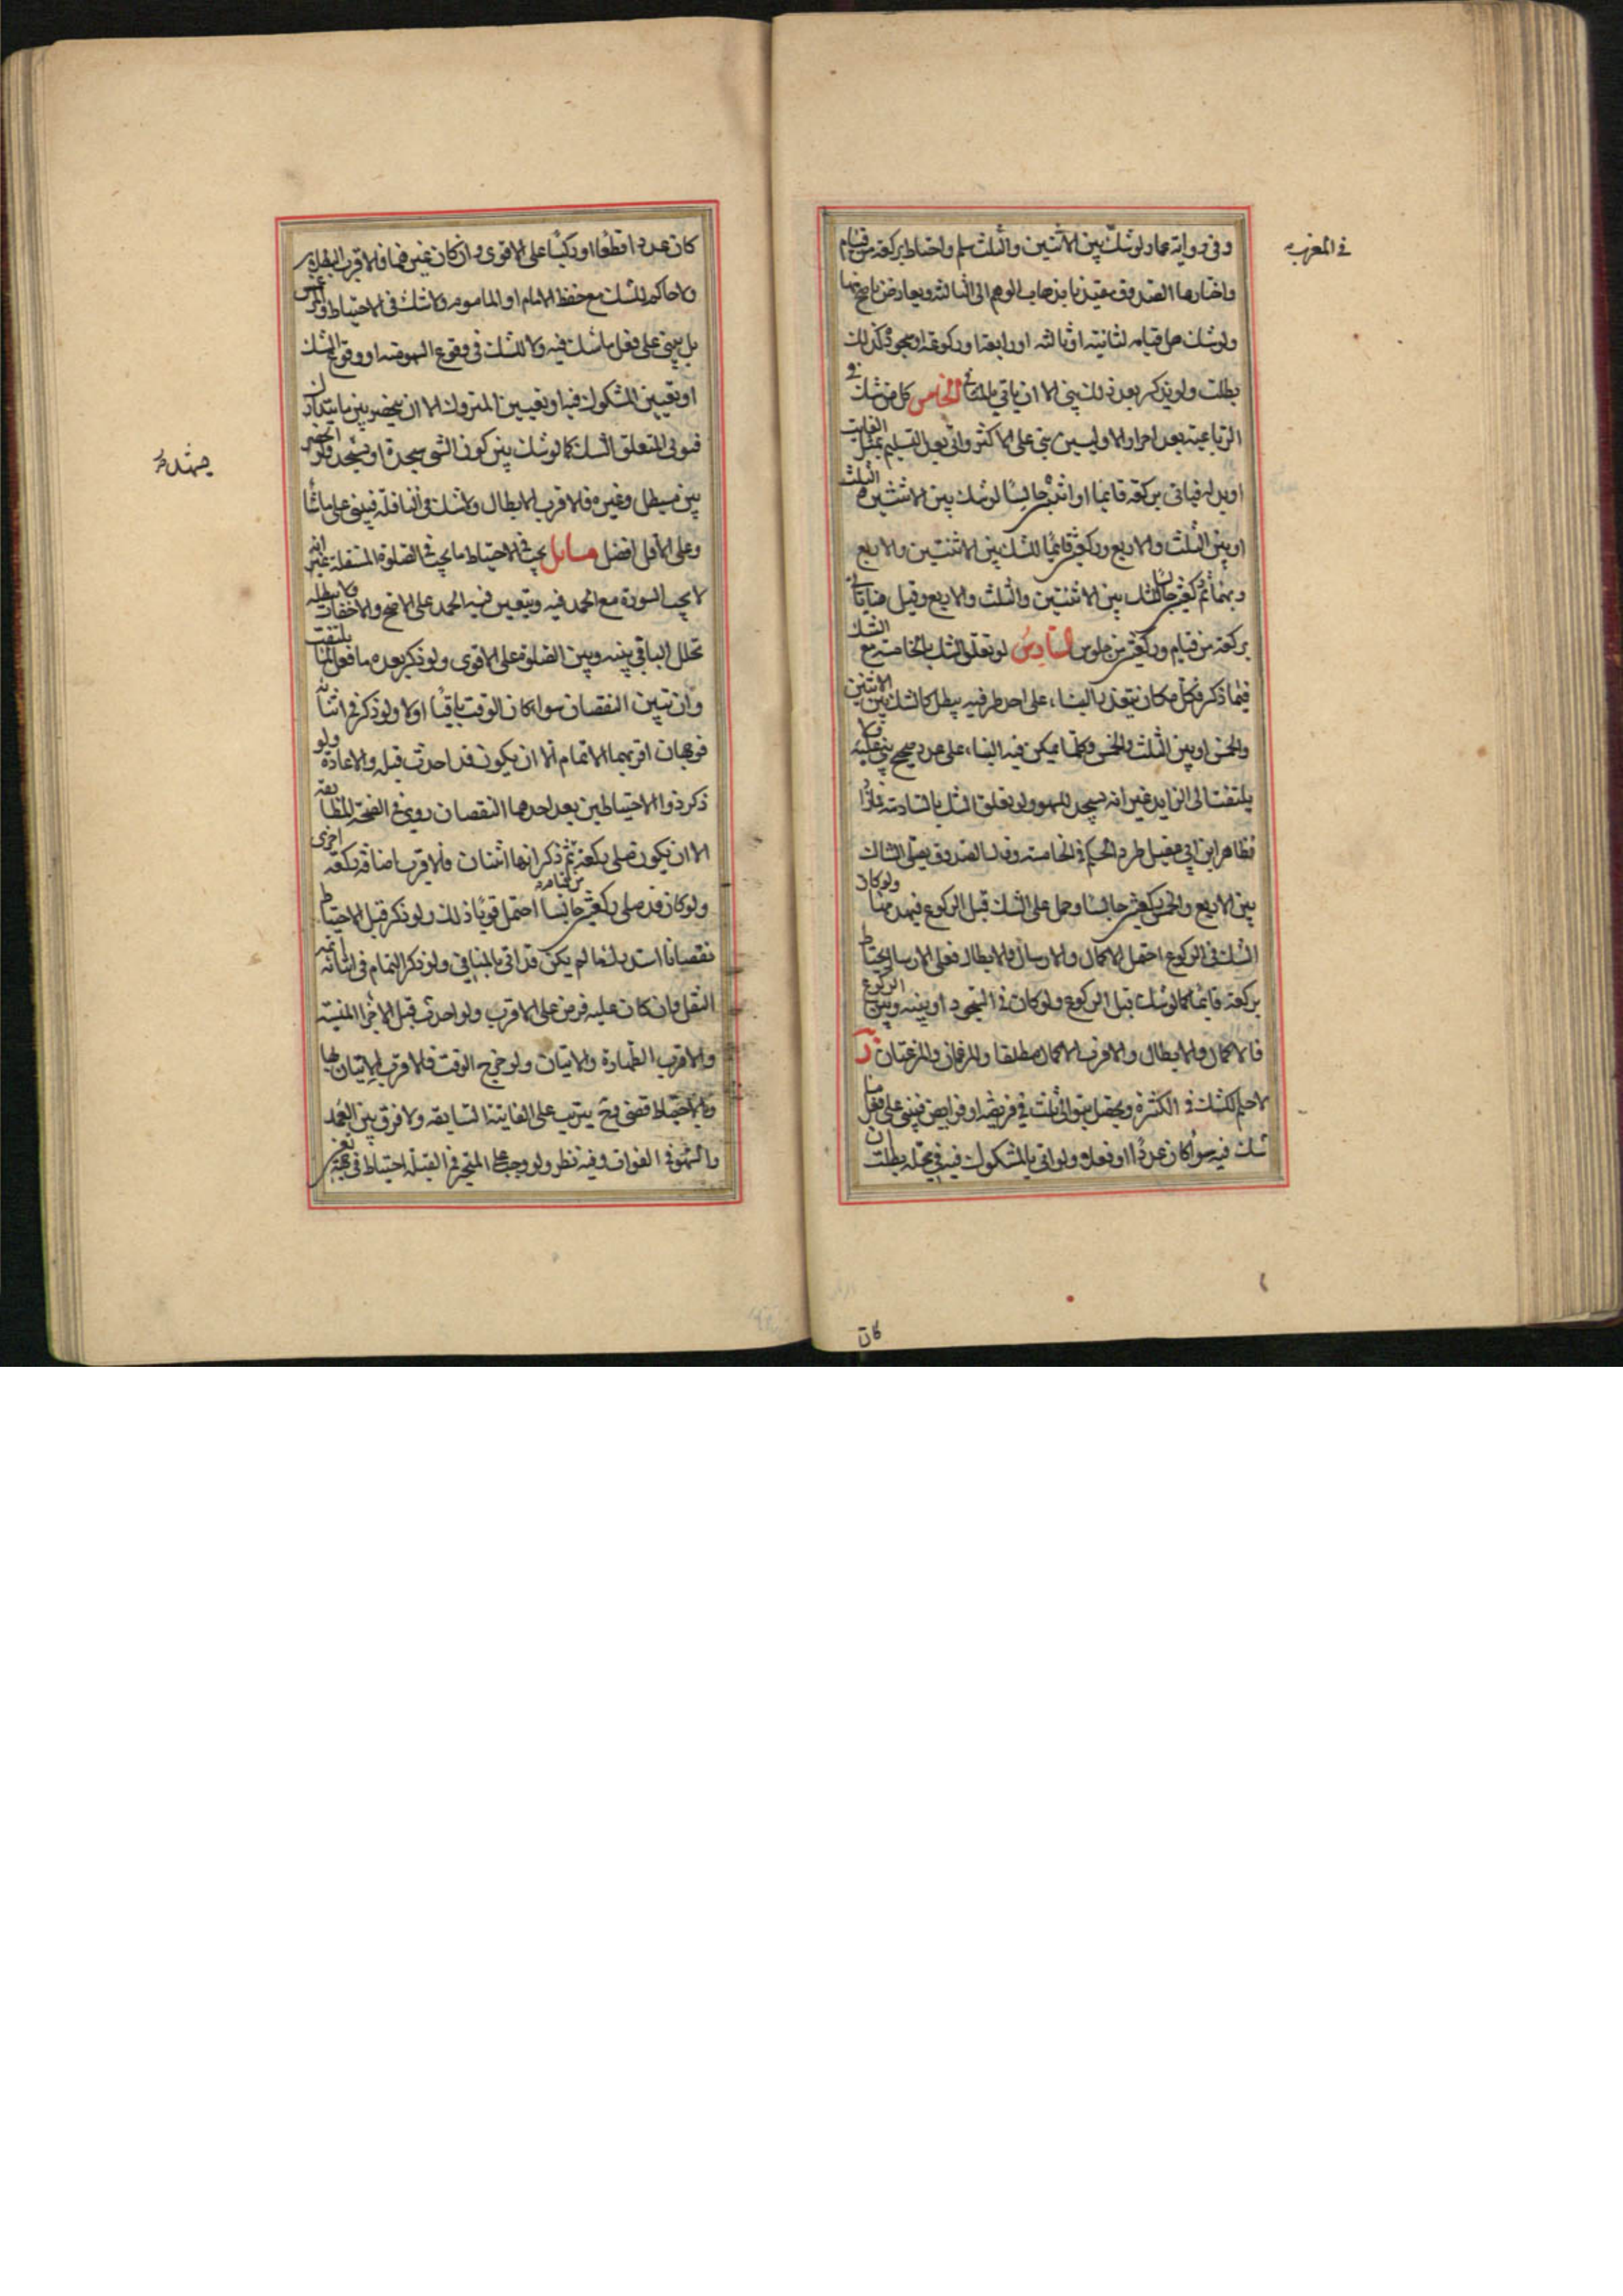 وفى رواية عمار لو شك بين الاثنتين والثلث سلم واحتاط بركعة من قيام
فى المغرب
واختارها الصدوق مقيدا بذهاب الوهم الى الثالثة ويعارض باصح منها
ولو شك هل قيامه لثانية او ثالثة او رابعة او ركوعه او سجوده كذلك
بطلت ولو تذكر بعد ذلك بنى الا ان ياتى بالمنا الخامس كل من شك فى
الرباعية بعد احراز الاوليين بنى على الاكثر واتى بعد التسليم بمثل الفايت
او بدله فياتى بركعة قايما او اثنتين جالسا لو شك بين الاثنتين والثلث
او بين الثلث والاربع وركعتين قايما للشك بين الاثنتين والاربع
وبهما ثم ركعتين جالسا للشك بين الاثنتين والثلث والاربع وقيل هنا ياتى
بركعة من قيام وركعتين من جلوس السادس لو تعلق الشك بالخامسة مع الشك
فيما ذكر فكل مكان يتعذر البناء على احد طرفيه يبطل كالشك بين الاثنتين
والخمس او بين الثلث والخمس وكلما يمكن فيه البناء على عدد صحيح بنى عليه ولا
يلتفت الى الزايد غير انه يسجد للسهو ولو تعلق الشك بالسادسة فنازلا
فظاهر ابن ابى عقيل طرد الحكم فى الخامسة وقال الصدوق يصلى الشاك
بين الاربع والخمس ركعتين جالسا وحمل على الشك قبل الركوع فيهدمها ولو كان
الشك فى الركوع احتمل الاكمال والارسال والابطال فعلى الارسال يحتاط
بركعة قايما كما لو شك قبل الركوع ولو كان فى السجود او بينه وبين الركوع
فالاكمال والابطال والاقرب الاكمال مطلقا والمرغمتان
لا حكم للشك فى الكثرة ويحصل بتوالى ثلث فى فريضة او فرايض فيبنى على فعل ما
شك فيه سواء كان عددا او فعلا ولو اتى بالمشكوك فيه فى محله بطلت ان
كان
كان عددا قطعا او ركنا على الاقوى وان كان غيرهما فالاقرب البطلان
ولا حكم للشك مع حفظ الامام او الماموم ولا شك فى الاحتياط
بل يبنى على فعل ما شك فيه ولا للشك فى وقوع السهو منه او وقوع الشك
او تعيين المشكوك فيه او تعيين المتروك الا ان ينحصر بين ما يتداركان
فيوتى المتعلق الشك كما لو شك بين كون الشىء سجدة او تشهد ولو انحصر
بين مبطل وغيره فالاقرب الابطال ولا شك فى النافلة فيبنى على ما شا
وعلى الاقل افضل مسايل يجب فى الاحتياط ما يجب فى الصلوة المستقلة غير انه
لا يجب السورة مع الحمد فيه ويتعين فيه الحمد على الاصح والاخفات ولا يبطله
تخلل الباقى بينه وبين الصلوة على الاقوى ولو ذكر بعده ما فعل لم يلتفت
وان تبين النقصان سواء كان الوقت باقيا او لا ولو ذكر فى اثنائه
فوجهان اقربهما الاتمام الا ان يكون قد احدث قبله والاعادة ولو
ذكر ذو الاحتياطين بعد احدهما النقصان روعى فى الصحة المطابقة
الا ان يكون صلى ركعة ثم ذكر انها اثنتان فالاقرب اضافة ركعة اخرى
ولو كان قد صلى ركعتين جالسا احتمل قويا ذلك ولو ذكر قبل الاحتياط
نقصانا استدركه ما لم يكن قد اتى بالمنافى ولو ذكر التمام فى اثنائه اتمه
النفل وان كان عليه فرض على الاقرب ولو احدث قبل الاجزا المنسية
والاقرب الطهارة والاتيان ولو خرج الوقت فالاقرب الاتيان بها
وبالاحتياط قضى وح يترتب على الفايتة السابقة ولا فرق بين العمد
والسهو فى الفوات وفيه نظر ولو وجب على المتحير فى القبلة احتياط فى جهة